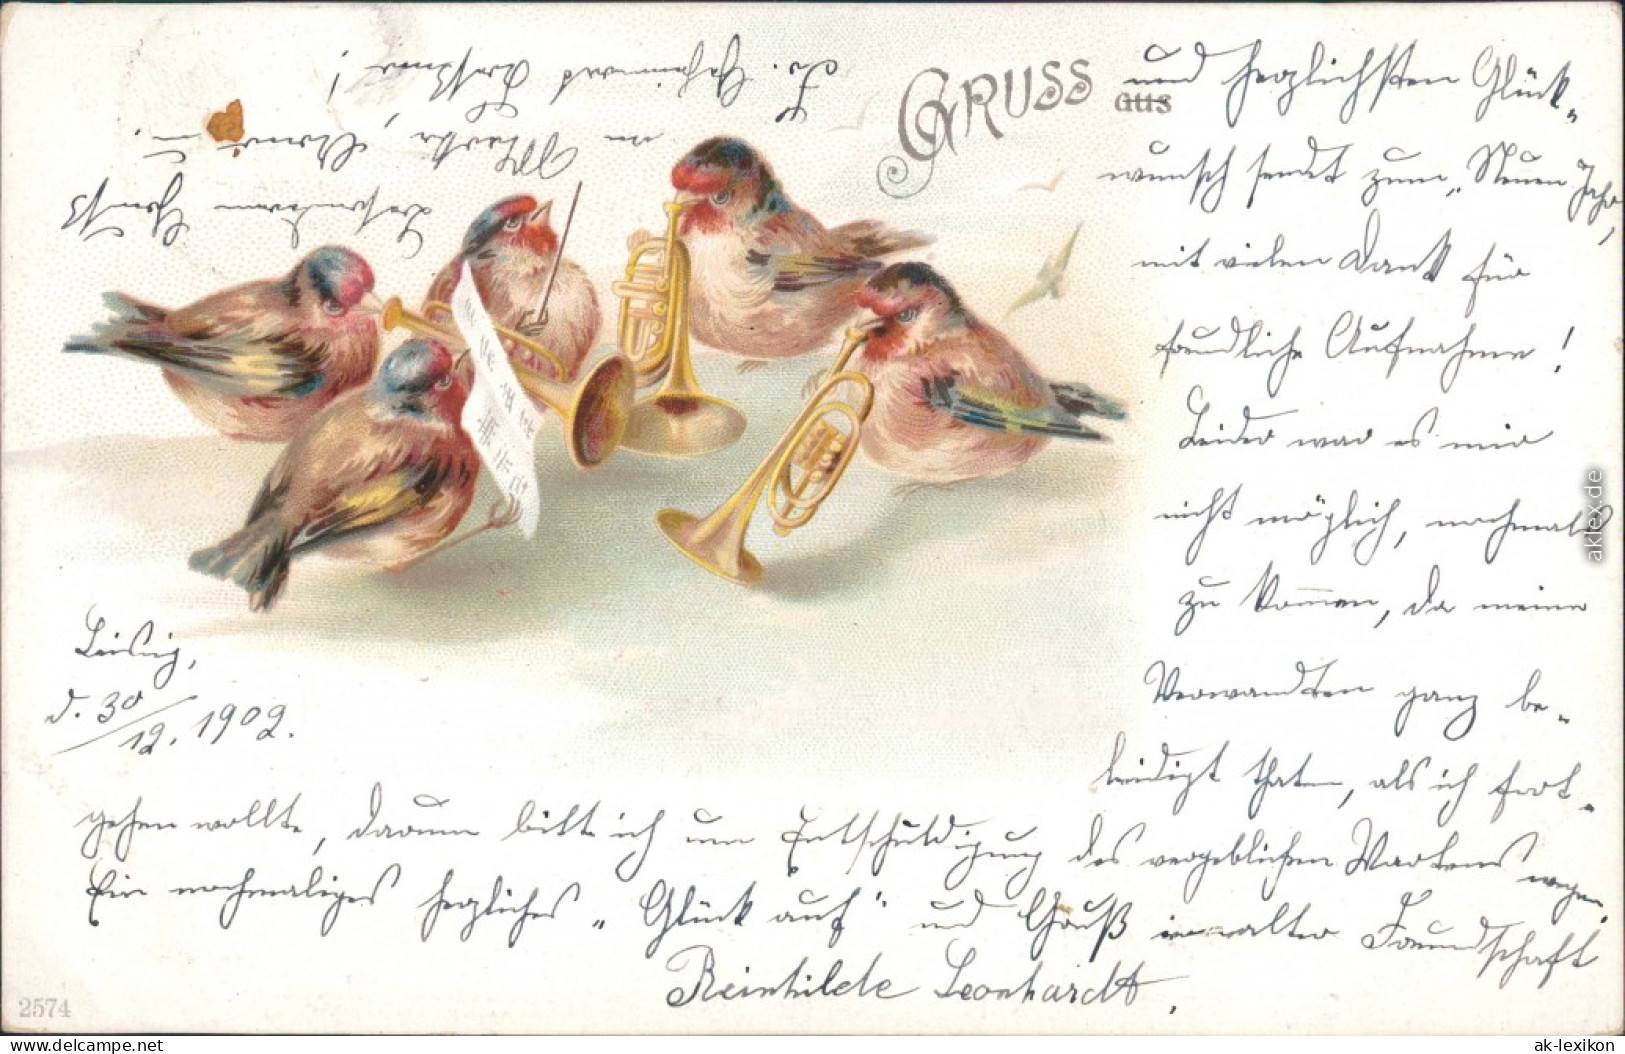 GRUSS aus
und herzlichsten Glück-
wunsch sendet zum „Neuen Jahr,
mit vielen Dank für
freundliche Aufnahme!
Leider war es mir
nicht möglich, nochmals
zu kommen, da meine
Verwandten ganz be-
leidigt thaten, als ich fort-
gehen wollte, darum bitte ich um Entschuldigung des vergeblichen Wartens wegen.
Ein nochmaliges herzliches „Glück auf“ und Gruß in alter Freundschaft
Reinhilde Leonhardt,
Leisnig,
d. 30/12. 1902.
besonderen Gruß
an Martha,
Geschwister
2574
aklex.de
www.delcampe.net
ak-lexikon